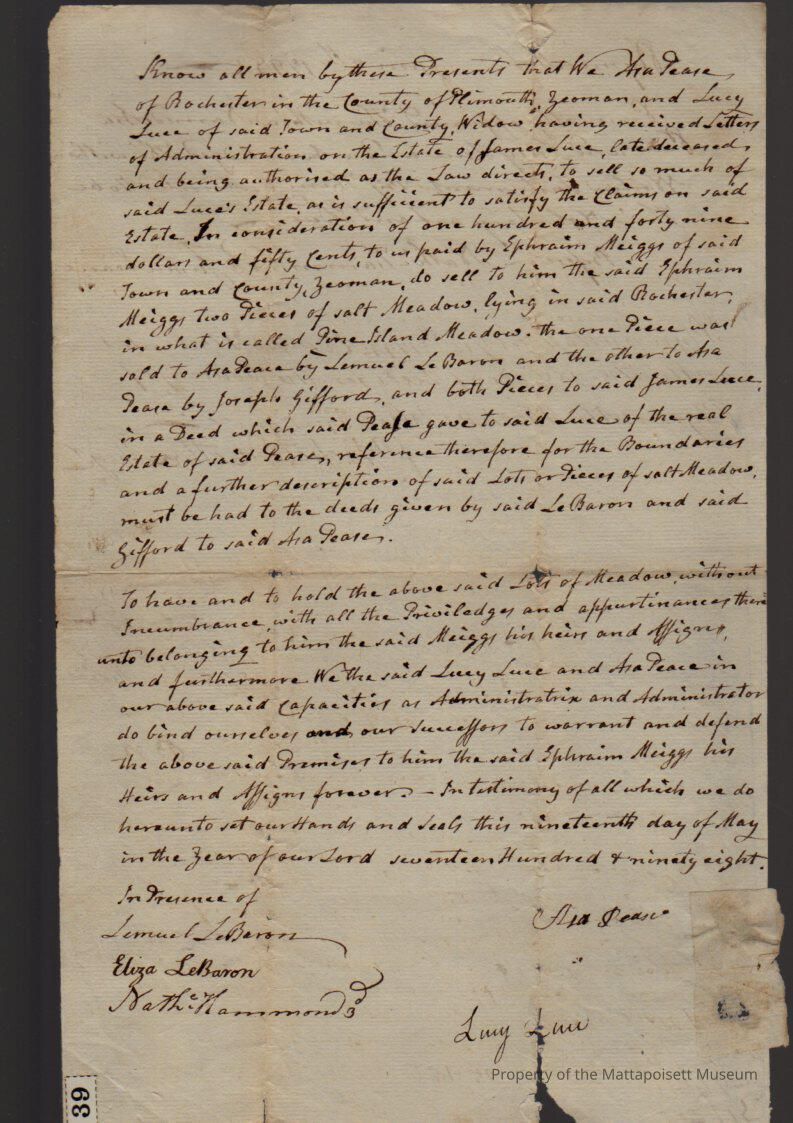 Know all men by these Presents that We Asa Pease
of Rochester in the County of Plimouth, Yeoman, and Lucy
Luce of said Town and County, Widow, having received Letters
of Administration on the Estate of James Luce, late deceased,
and being authorised as the Law directs, to sell so much of
said Luce's Estate, as is sufficient to satisfy the Claims on said
Estate, In consideration of one hundred and forty nine
dollars and fifty Cents, to us paid by Ephraim Meiggs of said
Town and County, Yeoman, do sell to him the said Ephraim
Meiggs two Pieces of salt Meadow, lying in said Rochester,
in what is called Pine Island Meadow. the one Piece was
sold to Asa Peace by Lemuel LeBaron and the other to Asa
Pease by Joseph Gifford, and both Pieces to said James Luce,
in a Deed which said Pease gave to said Luce of the real
Estate of said Pease, reference therefore for the Boundaries
and a further description of said Lots or Pieces of salt Meadow,
must be had to the deeds given by said LeBaron and said
Gifford to said Asa Pease.
To have and to hold the above said Lots of Meadow, without
Incumbrance, with all the Priviledges and appurtinances there
unto belonging to him the said Meiggs his heirs and Assigns,
and furthermore We the said Lucy Luce and Asa Peace in
our above said Capacities as Administratrix and Administrator
do bind ourselves and our Successors to warrant and defend
the above said Premises to him the said Ephraim Meiggs his
Heirs and Assigns forever. – In testimony of all which we do
hereunto set our Hands and Seals this nineteenth day of May
in the Year of our Lord seventeen Hundred & ninety eight.
In Presence of
Lemuel LeBaron
Asa Pease
Eliza LeBaron
Nathl. Hammond 3d
Lucy Luce
Property of the Mattapoisett Museum
39